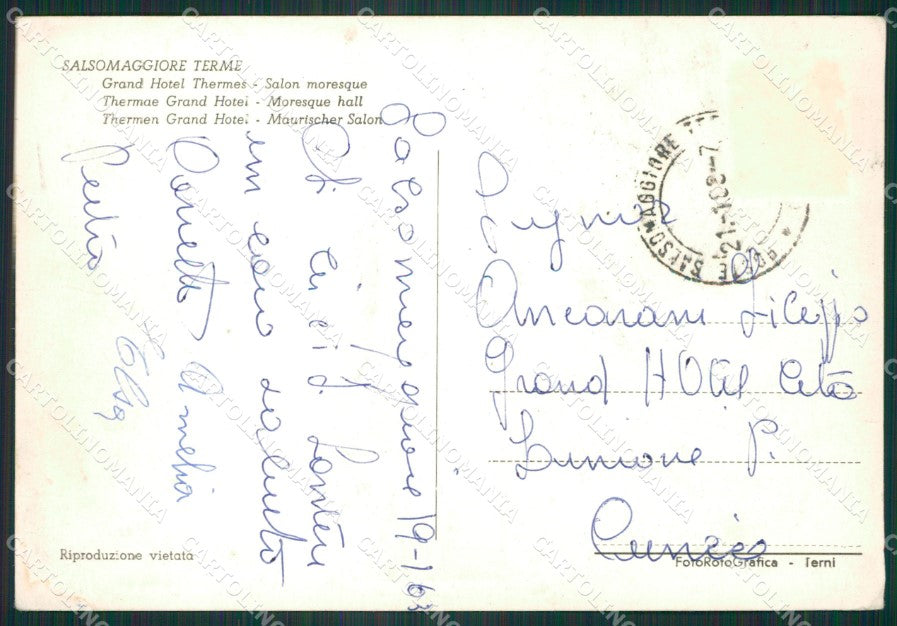 SALSOMAGGIORE TERME
Grand Hotel Thermes - Salon moresque
Thermae Grand Hotel - Moresque hall
Thermen Grand Hotel - Maurischer Salon
Salsomaggiore 19-1 63
un caro saluto
Donetto Amelia
Pietro Elsa
Signor
Anearani Filippo
Grand HOtel
Limone P.
Cuneo
Riproduzione vietata
FotoRotoGrafica - Terni
SALSOMAGGIORE
CARTOLINOMANIA